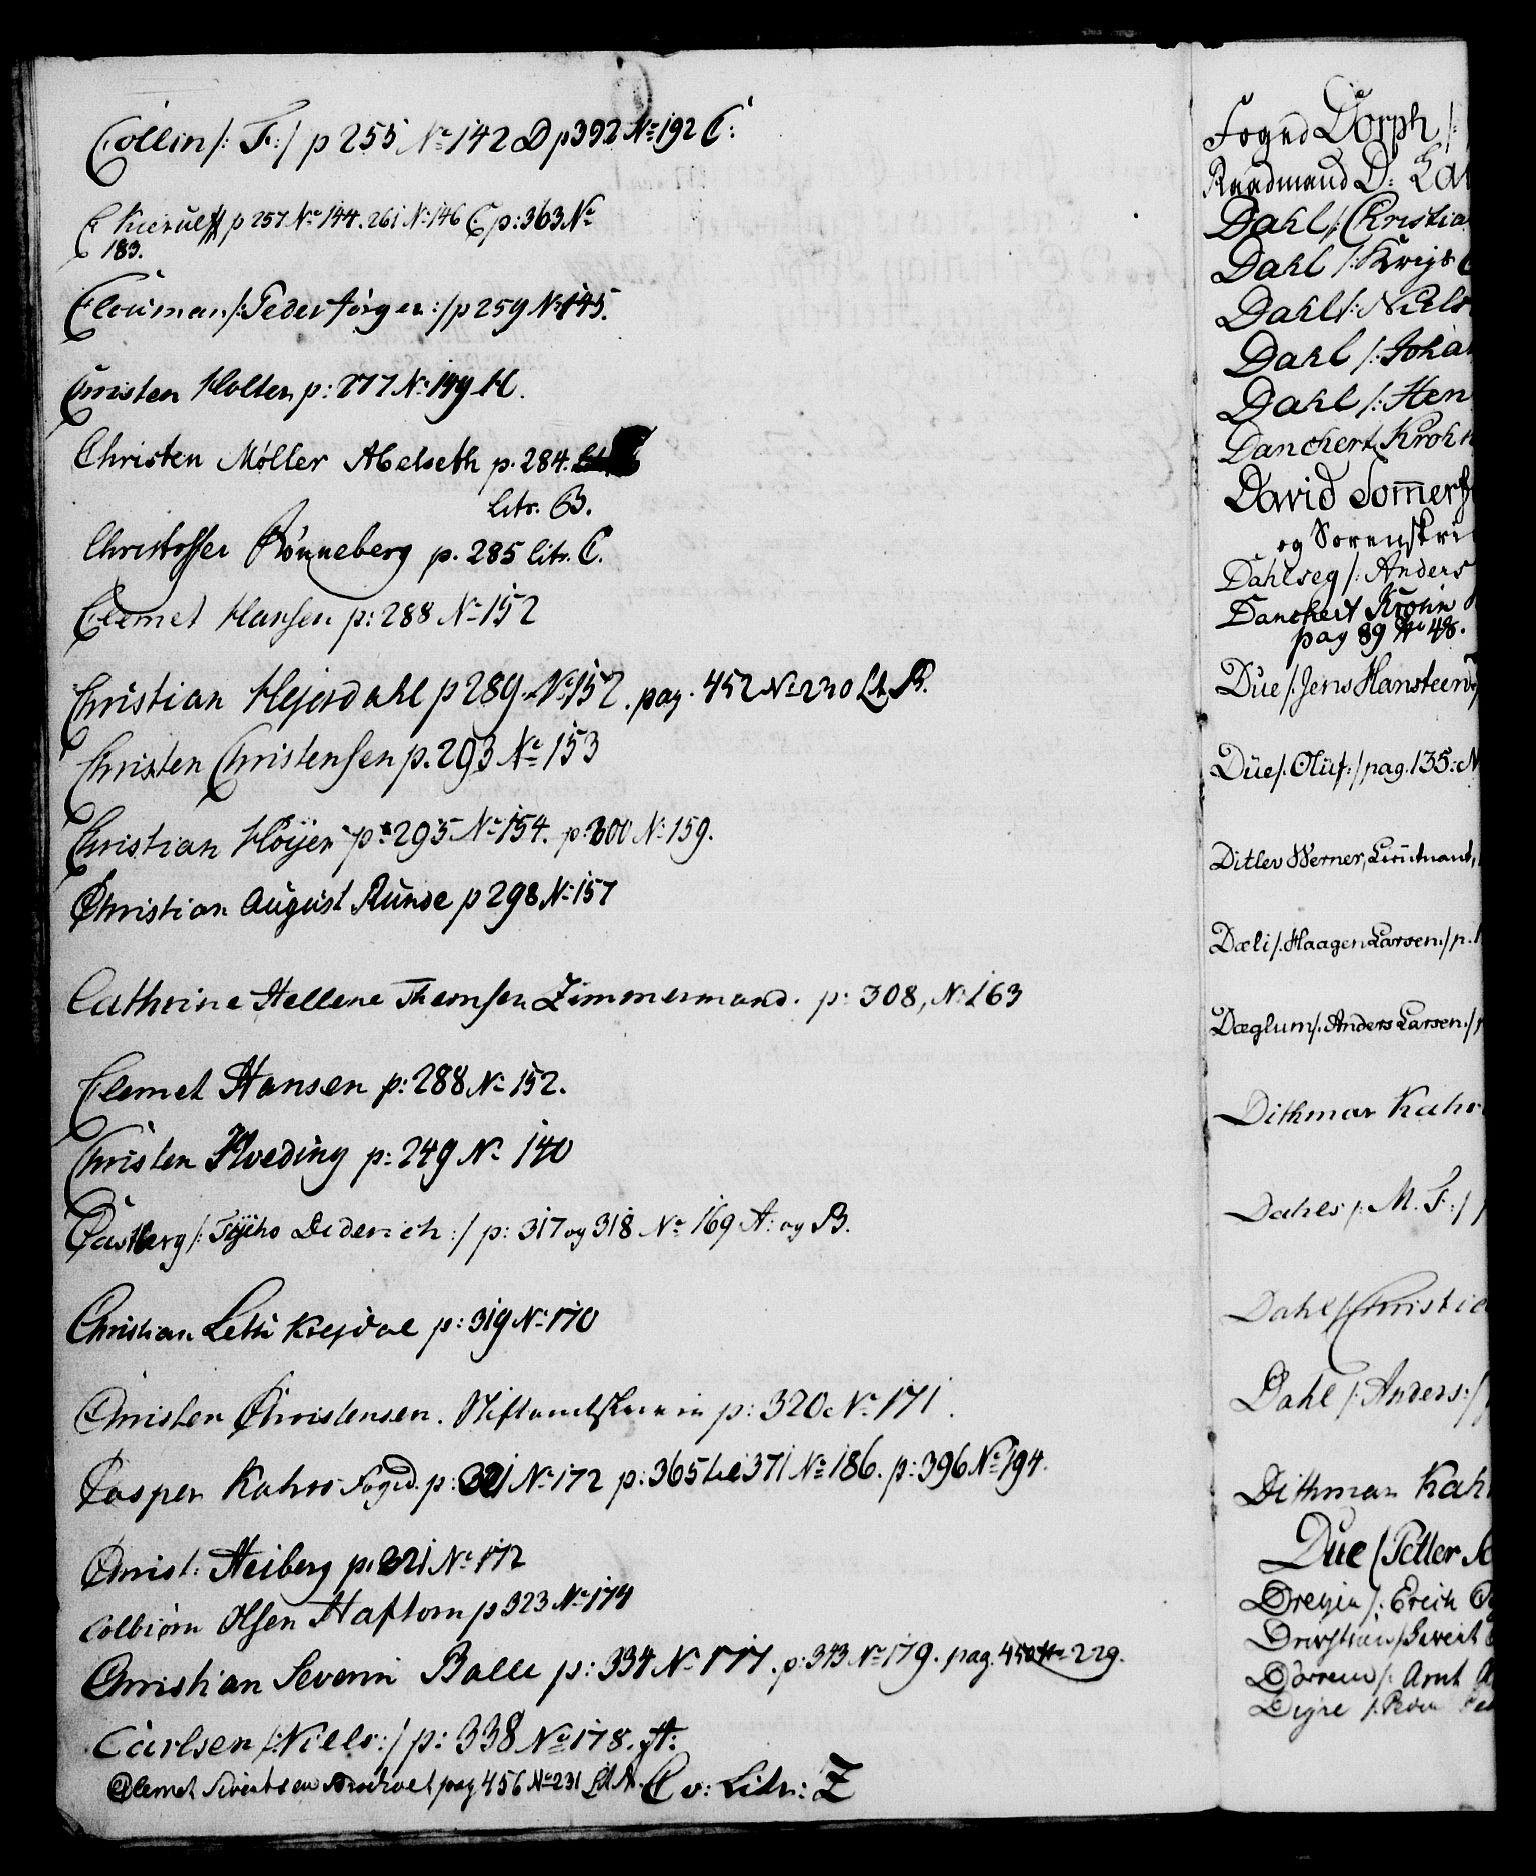 Collin /: F: / p 255 No 142 D p 392 No 192 C:
C Kierulff p 257 No 144. 261 No 146 C p: 363 No
183.
Clouman /: Peder Jørgen: / p 259 No 145.
Christen Holter p: 277 No 149 H.
Christen Møller Abelseth p. 284.
Litr. B.
Christoffer Rönneberg p. 285 litr. C.
Clemet Hansen p: 288 No 152
Christian Hejerdahl p 289 No 152. pag. 452 No 230 Lit B.
Christen Christensen p. 293 No 153
Christian Höyer p: 295 No 154. p: 300 No 159.
Christian August Runde p 298 No 157
Cathrine Hellene Thomsen Zimmermand. p: 308, No 163
Clemet Hansen p: 288 No 152.
Christen Hveding p: 249 No 140
Castberg /: Tycho Diderich: / p: 317 og 318 No 169 A: og B.
Christian Krejdal p: 319 No 170
Christen Christensen. p: 320 No 171.
Casper Kahrs Fogd. p: 321 No 172 p: 365 til 371 No 186. p: 396 No 194.
Christ: Heiberg p: 321 No 172
Colbiörn Olsen Haftorn p 323 No 174
Christian Severin Balle p: 334 No 177. p: 343 No 179. pag. 450 No 229.
Carlsen /: Niels: / p: 338 No 178. A:
Clemet Sivertsen pag 456 No 231 Lit A. C v: Litr: Z
Foged Dorph /:
Raadmand D: La
Dahl /: Christia
Dahl /: Krigs C
Dahl /: Niels
Dahl /: Johan
Dahl /: Hen
Danckert Krohn
David Sommerf
og Sorenskri
Dahlseg /: Anders
Danckert Krohn
pag 89 No 48.
Due /: Jens Hansteen
Düe /: Oluf: / pag. 135: N
Ditlev Werner, Lieutnant,
Dæli /: Haagen Larsen: / p.
Dæglum /: Anders Larsen: /
Dithmar Kahrs
Dahls /: M. F: /
Dahl /: Christia
Dahl /: Anders: /
Dithmar Kahr
Due /: Petter
Dreyer /: Erich
Sivert
Arnt